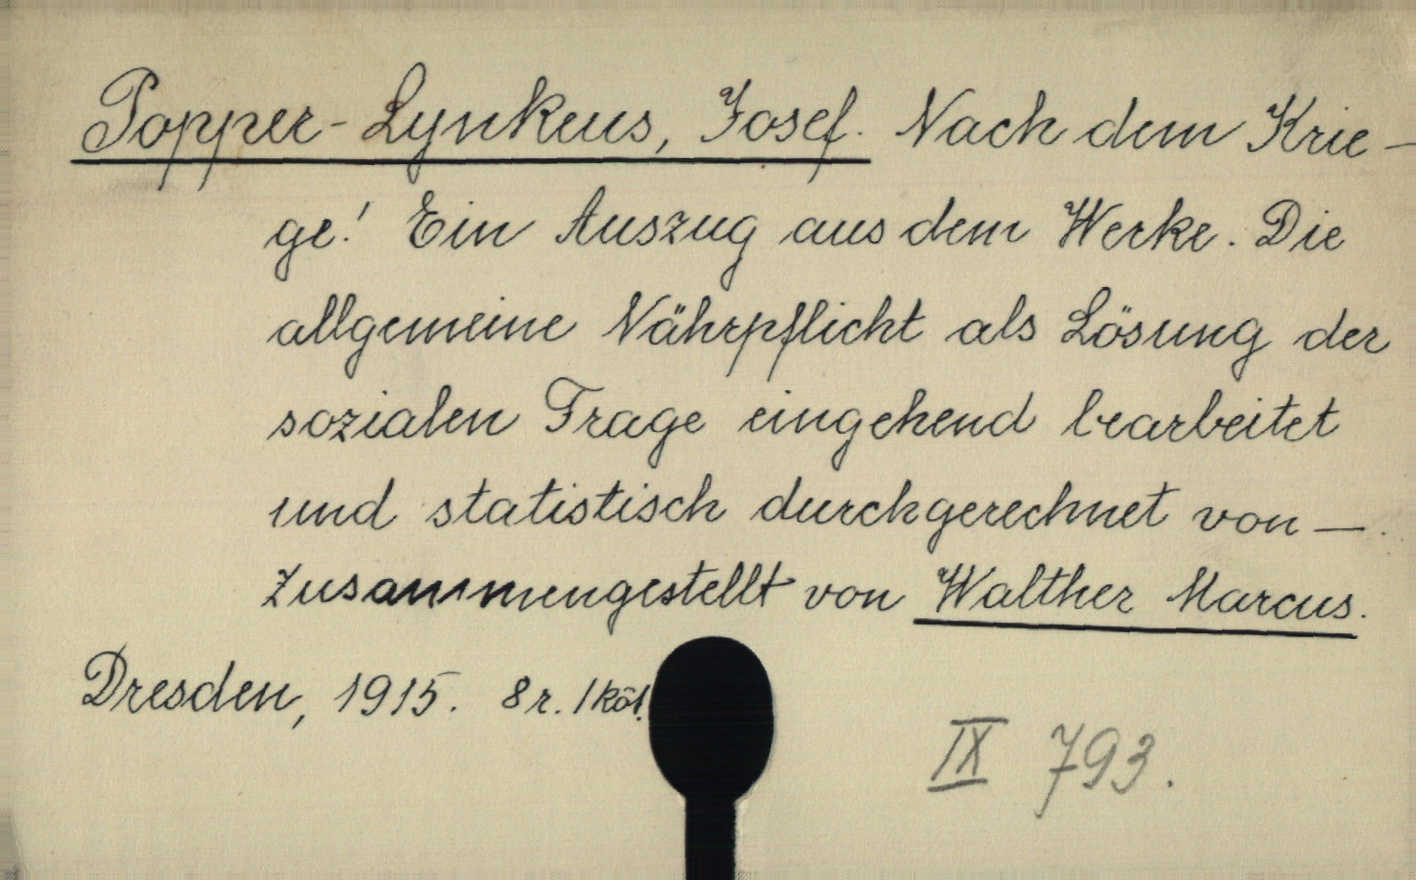 Popper-Lynkeus, Josef. Nach dem Krie-
ge! Ein Auszug aus dem Werke. Die
allgemeine Nährpflicht als Lösung der
sozialen Frage eingehend bearbeitet
und statistisch durchgerechnet von —.
Zusammengestellt von Walther Marcus.
Dresden, 1915. 8r. 1 köt.
IX 793.